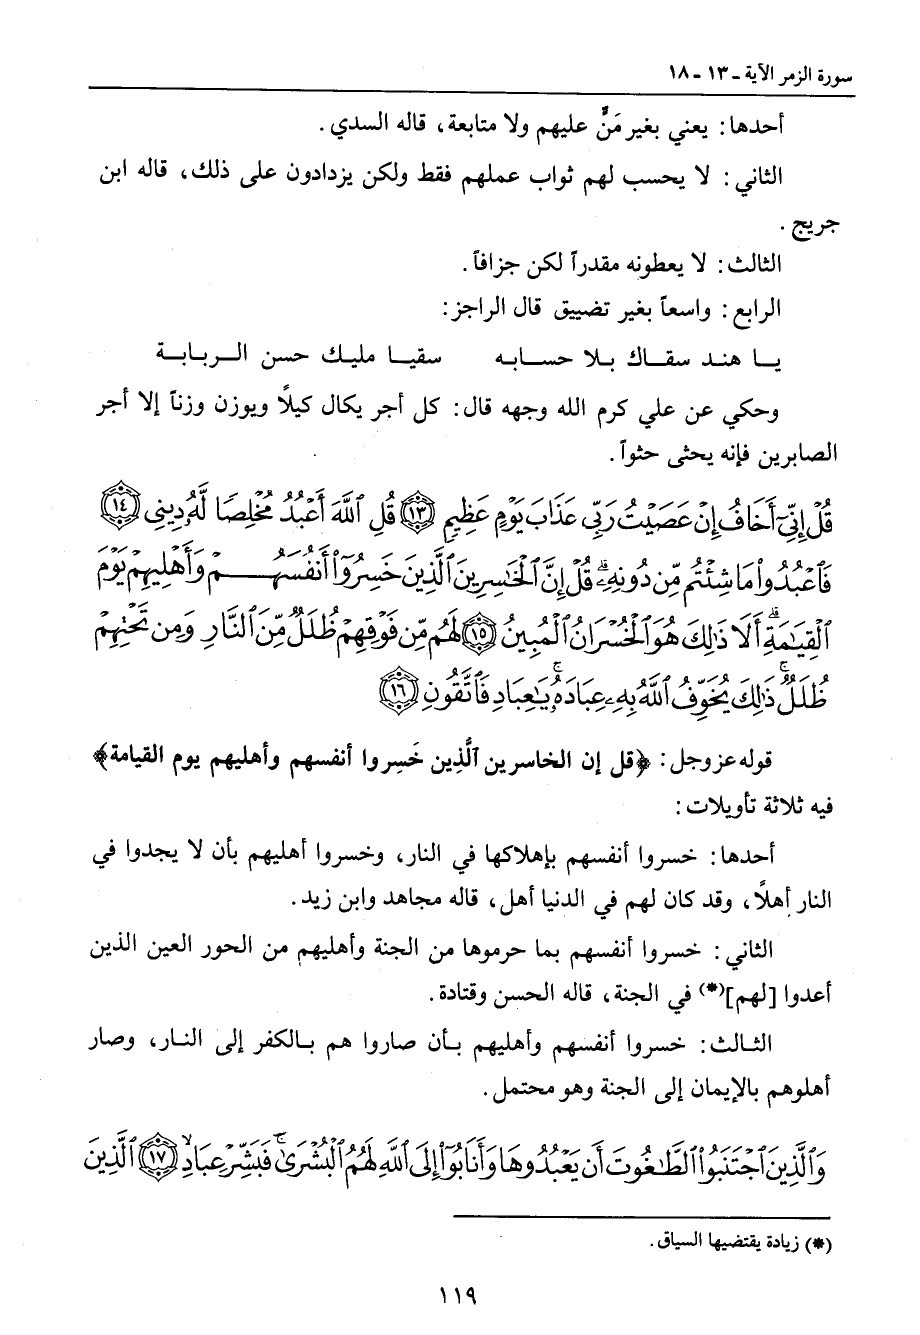 سورة الزمر الآية ـ ١٣ ـ ١٨
أحدها: يعني بغير مَنٍّ عليهم ولا متابعة، قاله السدي.
الثاني: لا يحسب لهم ثواب عملهم فقط ولكن يزدادون على ذلك، قاله ابن
جريج.
الثالث: لا يعطونه مقدراً لكن جزافاً.
الرابع: واسعاً بغير تضييق قال الراجز:
يا هند سقاك بلا حسابه سقيا مليك حسن الربابة
وحكي عن علي كرم الله وجهه قال: كل أجر يكال كيلًا ويوزن وزناً إلا أجر
الصابرين فإنه يحثى حثواً.
قُلْ إِنِّيٓ أَخَافُ إِنْ عَصَيْتُ رَبِّي عَذَابَ يَوْمٍ عَظِيمٍ ١٣ قُلِ ٱللَّهَ أَعْبُدُ مُخْلِصًا لَّهُۥ دِينِي ١٤
فَٱعْبُدُوا۟ مَا شِئْتُم مِّن دُونِهِۦ ۗ قُلْ إِنَّ ٱلْخَٰسِرِينَ ٱلَّذِينَ خَسِرُوٓا۟ أَنفُسَهُمْ وَأَهْلِيهِمْ يَوْمَ
ٱلْقِيَٰمَةِ ۗ أَلَا ذَٰلِكَ هُوَ ٱلْخُسْرَانُ ٱلْمُبِينُ ١٥ لَهُم مِّن فَوْقِهِمْ ظُلَلٌ مِّنَ ٱلنَّارِ وَمِن تَحْتِهِمْ
ظُلَلٌ ۚ ذَٰلِكَ يُخَوِّفُ ٱللَّهُ بِهِۦ عِبَادَهُۥ ۚ يَٰعِبَادِ فَٱتَّقُونِ ١٦
قوله عز وجل: ﴿قل إن الخاسرين الَّذِين خَسِروا أنفسهم وأهليهم يوم القيامة﴾
فيه ثلاثة تأويلات:
أحدها: خسروا أنفسهم بإهلاكها في النار، وخسروا أهليهم بأن لا يجدوا في
النار أهلًا، وقد كان لهم في الدنيا أهل، قاله مجاهد وابن زيد.
الثاني: خسروا أنفسهم بما حرموها من الجنة وأهليهم من الحور العين الذين
أعدوا [لهم](*) في الجنة، قاله الحسن وقتادة.
الثالث: خسروا أنفسهم وأهليهم بأن صاروا هم بالكفر إلى النار، وصار
أهلوهم بالإيمان إلى الجنة وهو محتمل.
وَٱلَّذِينَ ٱجْتَنَبُوا۟ ٱلطَّٰغُوتَ أَن يَعْبُدُوهَا وَأَنَابُوٓا۟ إِلَى ٱللَّهِ لَهُمُ ٱلْبُشْرَىٰ ۚ فَبَشِّرْ عِبَادِ ١٧ ٱلَّذِينَ
(*) زيادة يقتضيها السياق.
١١٩